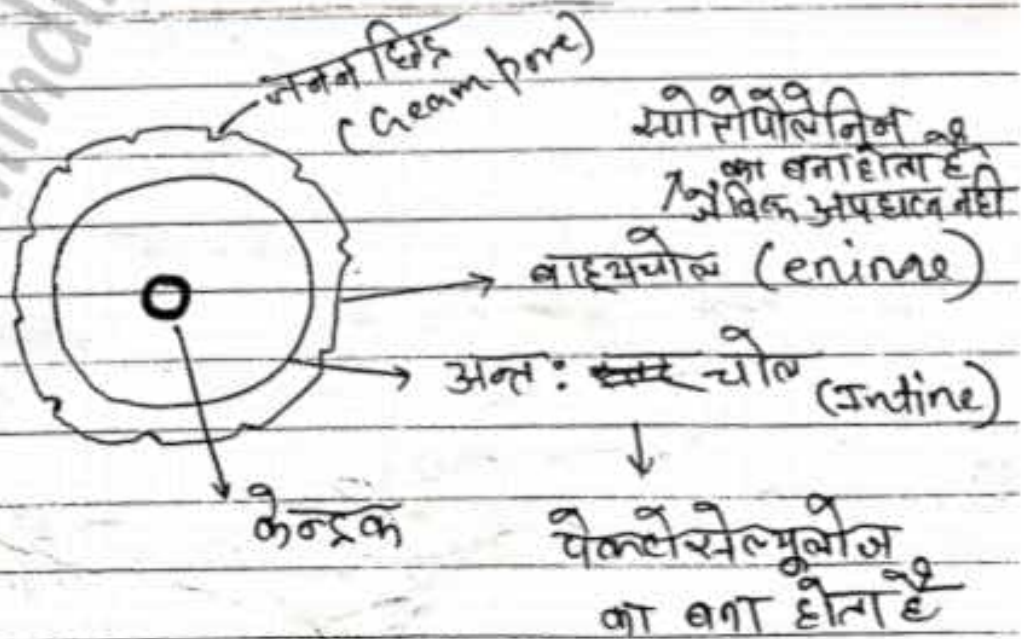 जनन छिद्र
(Gearm pore)
स्पोरोपोलेनिन
का बना होता है
जैविक अपघटन नहीं
बाह्यचोल (eninne)
अन्त: चोल
(Intine)
केन्द्रक
पेक्टोसेल्युलोज
का बना होता है